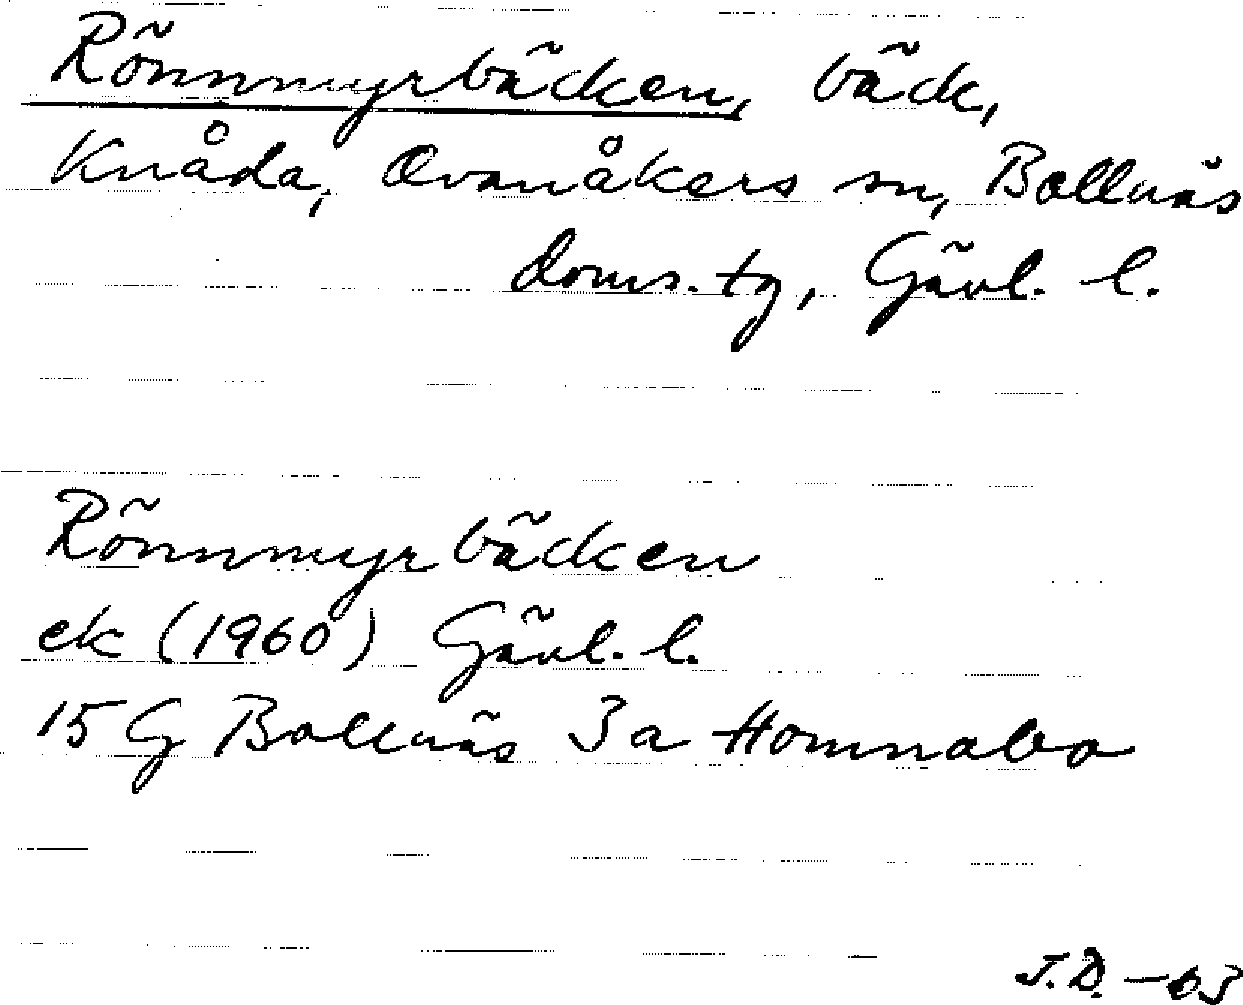 Rönnmyrbäcken, bäck,
Knåda, Ovanåkers sn, Bollnäs
doms. tg, Gävl. l.
Rönnmyrbäcken
ek (1960) Gävl. l.
15 G Bollnäs 3a Homnabo
J.D. -63